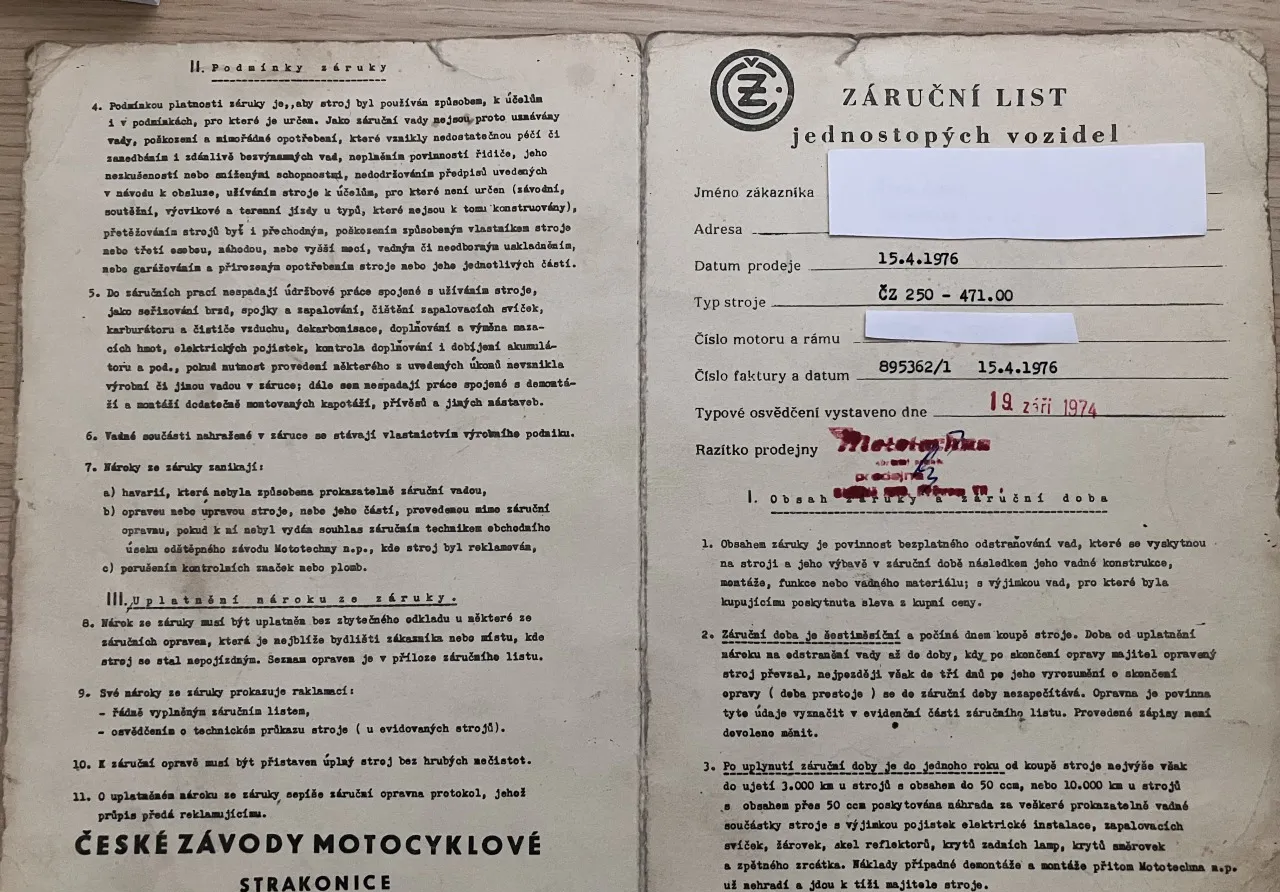 II. Podmínky záruky
4. Podmínkou platnosti záruky je,,aby stroj byl používán způsobem, k účelům
i v podmínkách, pro které je určen. Jako záruční vady nejsou proto uznávány
vady, poškození a mimořádné opotřebení, které vznikly nedostatečnou péčí či
zanedbáním i zdánlivě bezvýznamných vad, neplněním povinností řidiče, jeho
nezkušeností nebo sníženými schopnostmi, nedodržováním předpisů uvedených
v návodu k obsluze, užíváním stroje k účelům, pro které není určen (závodní,
soutěžní, výcvikové a terenní jízdy u typů, které nejsou k tomu konstruovány),
přetěžováním strojů byť i přechodným, poškozením způsobeným vlastníkem stroje
nebo třetí osobou, náhodou, nebo vyšší mocí, vadným či neodborným uskladněním,
nebo garážováním a přirozeným opotřebením stroje nebo jeho jednotlivých částí.
5. Do záručních prací nespadají údržbové práce spojené s užíváním stroje,
jako seřizování brzd, spojky a zapalování, čištění zapalovacích svíček,
karburátoru a čističe vzduchu, dekarbonisace, doplňování a výměna maza-
cích hmot, elektrických pojistek, kontrola doplňování i dobíjení akumulá-
toru a pod., pokud nutnost provedení některého z uvedených úkonů nevznikla
výrobní či jinou vadou v záruce; dále sem nespadají práce spojené s demontá-
ží a montáží dodatečně montovaných kapotáží, přívěsů a jiných nástaveb.
6. Vadné součásti nahražené v záruce se stávají vlastnictvím výrobního podniku.
7. Nároky ze záruky zanikají:
a) havarií, která nebyla způsobena prokazatelně záruční vadou,
b) opravou nebo úpravou stroje, nebo jeho částí, provedenou mimo záruční
opravnu, pokud k ní nebyl vydán souhlas záručním technikem obchodního
úseku odštěpného závodu Mototechny n.p., kde stroj byl reklamován,
c) porušením kontrolních značek nebo plomb.
III. Uplatnění nároku ze záruky.
8. Nárok ze záruky musí být uplatněn bez zbytečného odkladu u některé ze
záručních opraven, která je nejblíže bydlišti zákazníka nebo místu, kde
stroj se stal nepojízdným. Seznam opraven je v příloze záručního listu.
9. Své nároky ze záruky prokazuje raklamací:
- řádně vyplněným záručním listem,
- osvědčením o technickém průkazu stroje ( u evidovaných strojů).
10. K záruční opravě musí být přistaven úplný stroj bez hrubých nečistot.
11. O uplatněném nároku ze záruky sepíše záruční opravna protokol, jehož
průpis předá reklamujícímu.
ČESKÉ ZÁVODY MOTOCYKLOVÉ
STRAKONICE
ČZ
ZÁRUČNÍ LIST
jednostopých vozidel
Jméno zákazníka
Adresa
Datum prodeje 15.4.1976
Typ stroje ČZ 250 - 471.00
Číslo motoru a rámu
Číslo faktury a datum 895362/1 15.4.1976
Typové osvědčení vystaveno dne 19. září 1974
Razítko prodejny Mototechna
prodejna
I. Obsah záruky a záruční doba
1. Obsahem záruky je povinnost bezplatného odstraňování vad, které se vyskytnou
na stroji a jeho výbavě v záruční době následkem jeho vadné konstrukce,
montáže, funkce nebo vadného materiálu; s výjimkou vad, pro které byla
kupujícímu poskytnuta sleva z kupní ceny.
2. Záruční doba je šestiměsíční a počíná dnem koupě stroje. Doba od uplatnění
nároku na odstranění vady až do doby, kdy po skončení opravy majitel opravený
stroj převzal, nejpozději však do tří dnů po jeho vyrozumění o skončení
opravy ( doba prostoje ) se do záruční doby nezapočítává. Opravna je povinna
tyto údaje vyznačit v evidenční části záručního listu. Provedené zápisy není
dovoleno měnit.
3. Po uplynutí záruční doby je do jednoho roku od koupě stroje nejvýše však
do ujetí 3.000 km u strojů s obsahem do 50 ccm, nebo 10.000 km u strojů
s obsahem přes 50 ccm poskytována náhrada za veškeré prokazatelně vadné
součástky stroje s výjimkou pojistek elektrické instalace, zapalovacích
svíček, žárovek, skel reflektorů, krytů zadních lamp, krytů směrovek
a zpětného zrcátka. Náklady případné demontáže a montáže přitom Mototechna n.p.
už nehradí a jdou k tíži majitele stroje.